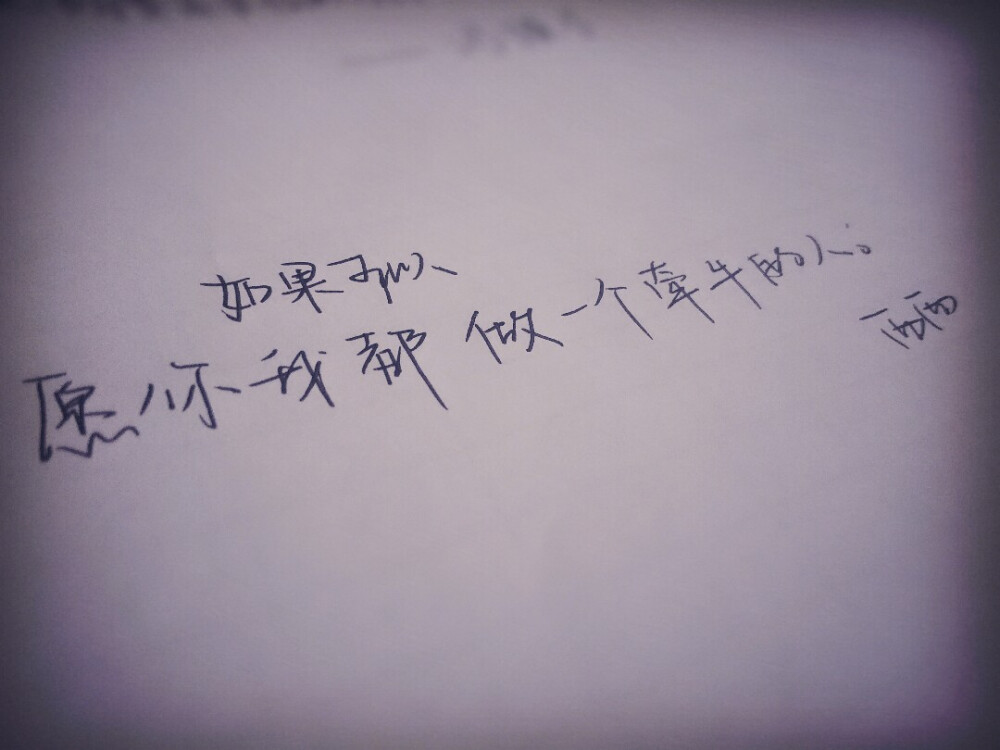 如果可以
愿你我都做一个牵牛的人。